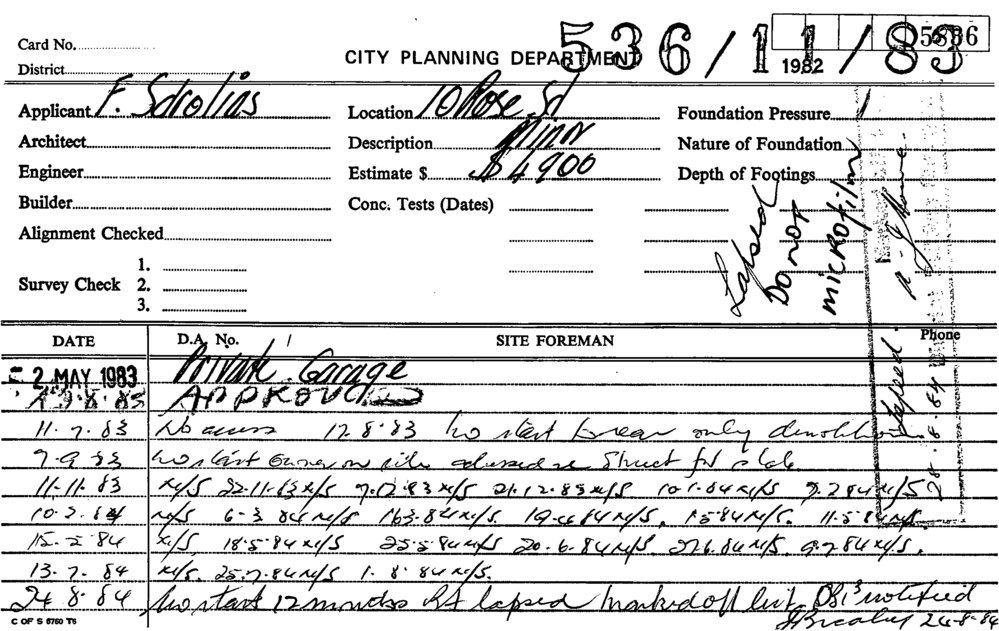 5886
Card No.
CITY PLANNING DEPARTMENT 536/11/83
1982
District
Applicant F. Location 10 Rose St Foundation Pressure
Architect Description Minor Nature of Foundation
Engineer Estimate $ $4900 Depth of Footings
Builder Conc. Tests (Dates)
Alignment Checked
Survey Check 1.
2.
3.
Lapsed
Do not
microfilm
Lapsed 28.8.84
DATE D.A. No. SITE FOREMAN Phone
2 MAY 1983 Private Garage
APPROVED
11.7.83 No access 12.8.83 no start only demolition
7.9.83 no start on site Struct for slab
11.11.83 N/S 22.11.83 N/S 7.12.83 N/S 21.12.83 N/S 10.1.84 N/S 9.2.84 N/S
10.2.84 N/S 6.3.84 N/S 16.3.84 N/S. 19.4.84 N/S. 1.5.84 N/S. 11.5.84 N/S.
15.5.84 N/S 18.5.84 N/S 25.5.84 N/S 20.6.84 N/S. 27.6.84 N/S. 9.7.84 N/S.
13.7.84 N/S. 25.7.84 N/S 1.8.84 N/S.
24.8.84 No start 12 months lapsed marked off list notified
24-8-84
C OF S 6760 T6